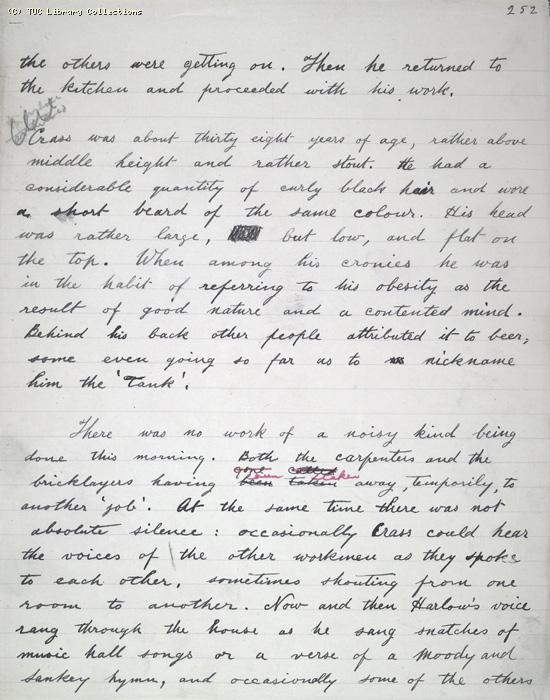 (C) TUC Library Collections
252
the others were getting on. Then he returned to
the kitchen and proceeded with his work.
Crass was about thirty eight years of age, rather above
middle height and rather stout. He had a
considerable quantity of curly black hair and wore
a short beard of the same colour. His head
was rather large, but low, and flat on
the top. When among his cronies he was
in the habit of referring to his obesity as the
result of good nature and a contented mind.
Behind his back other people attributed it to beer,
some even going so far as to nickname
him the 'Tank'.
There was no work of a noisy kind being
done this morning. Both the carpenters and the
gone called
been taken
bricklayers having been taken away, temporily, to
another 'job'. At the same time there was not
absolute silence: occasionally Crass could hear
the voices of the other workmen as they spoke
to each other, sometimes shouting from one
room to another. Now and then Harlow's voice
rang through the house as he sang snatches of
music hall songs or a verse of a Moody and
Sankey hymn, and occasionally some of the others